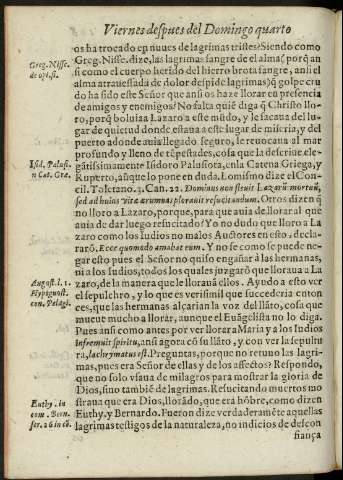 Viernes despues del Domingo quarto
os ha trocado en nuues de lagrimas tristes? Siendo como
Greg. Nisse. dize, las lagrimas sangre de el alma (porq̃ an
si como el cuerpo herido del hierro brota sangre, ansi el
alma atrauessada de dolor despide lagrimas) q̃ golpe cru
do ha sido este Señor que ansi os haze llorar en presencia
de amigos y enemigos? No falta quiẽ diga q̃ Christo llo-
ro, porq̃ boluia a Lazaro a este mũdo, y le sacaua del lu-
gar de quietud donde estaua a este lugar de miseria, y del
puerto adonde auia llegado seguro, le reuocaua al mar
profundo y lleno de tẽpestades, cosa que la descriue ele-
gãtissimamente Isidoro Palusiota, en la Catena Griega, y
Ruperto, aũque lo pone en duda. Lo mismo dize el Con-
cil. Toletano. 3. Can. 22. Dominus non fleuit Lazarũ mortuũ,
sed ad huius vitæ ærumnas plorauit resucitandum. Otros dizen q̃
no lloro a Lazaro, porque, para que auia de llorar al que
auia de dar luego resucitado? Yo no dudo que lloro a La
zaro como los Iudios no malos Auctores en esto, decla-
rarõ. Ecce quomodo amabat eum. Y no se como se puede ne-
gar esto pues el Señor no quiso engañar à las hermanas,
ni a los Iudios, todos los quales juzgarõ que lloraua a La-
zaro, de la manera que le llorauã ellos. Ayudo a esto ver
el sepulchro, y lo que es verisimil que succederia enton
ces, que las hermanas alçarian la voz del llãto, cosa que
mueue mucho a llorar, aunque el Euãgelista no lo diga.
Pues ansi como antes por ver llorar a Maria y a los Iudios
infremuit spiritu, ansi agora cõ su llãto, y con ver la sepultu
ra, lachrymatus est. Preguntas, porque no retuuo las lagri-
mas, pues era Señor de ellas y de los affectos? Respondo,
que no solo vsaua de milagros para mostrar la gloria de
Dios, sino tambiẽ de lagrimas. Resucitando muertos mo
straua que era Dios, llorãdo, que era hõbre, como dizen
Euthy. y Bernardo. Fueron dize verdaderamẽte aquellas
lagrimas testigos de la naturaleza, no indicios de descon
fiança
Greg. Nisse.
Isid. Palusi.
n Cat. Græ.
August. l. 1.
Hypognost.
con. Pelagi.
Euthy. in
com. Bern.
ser. 26 in cã.